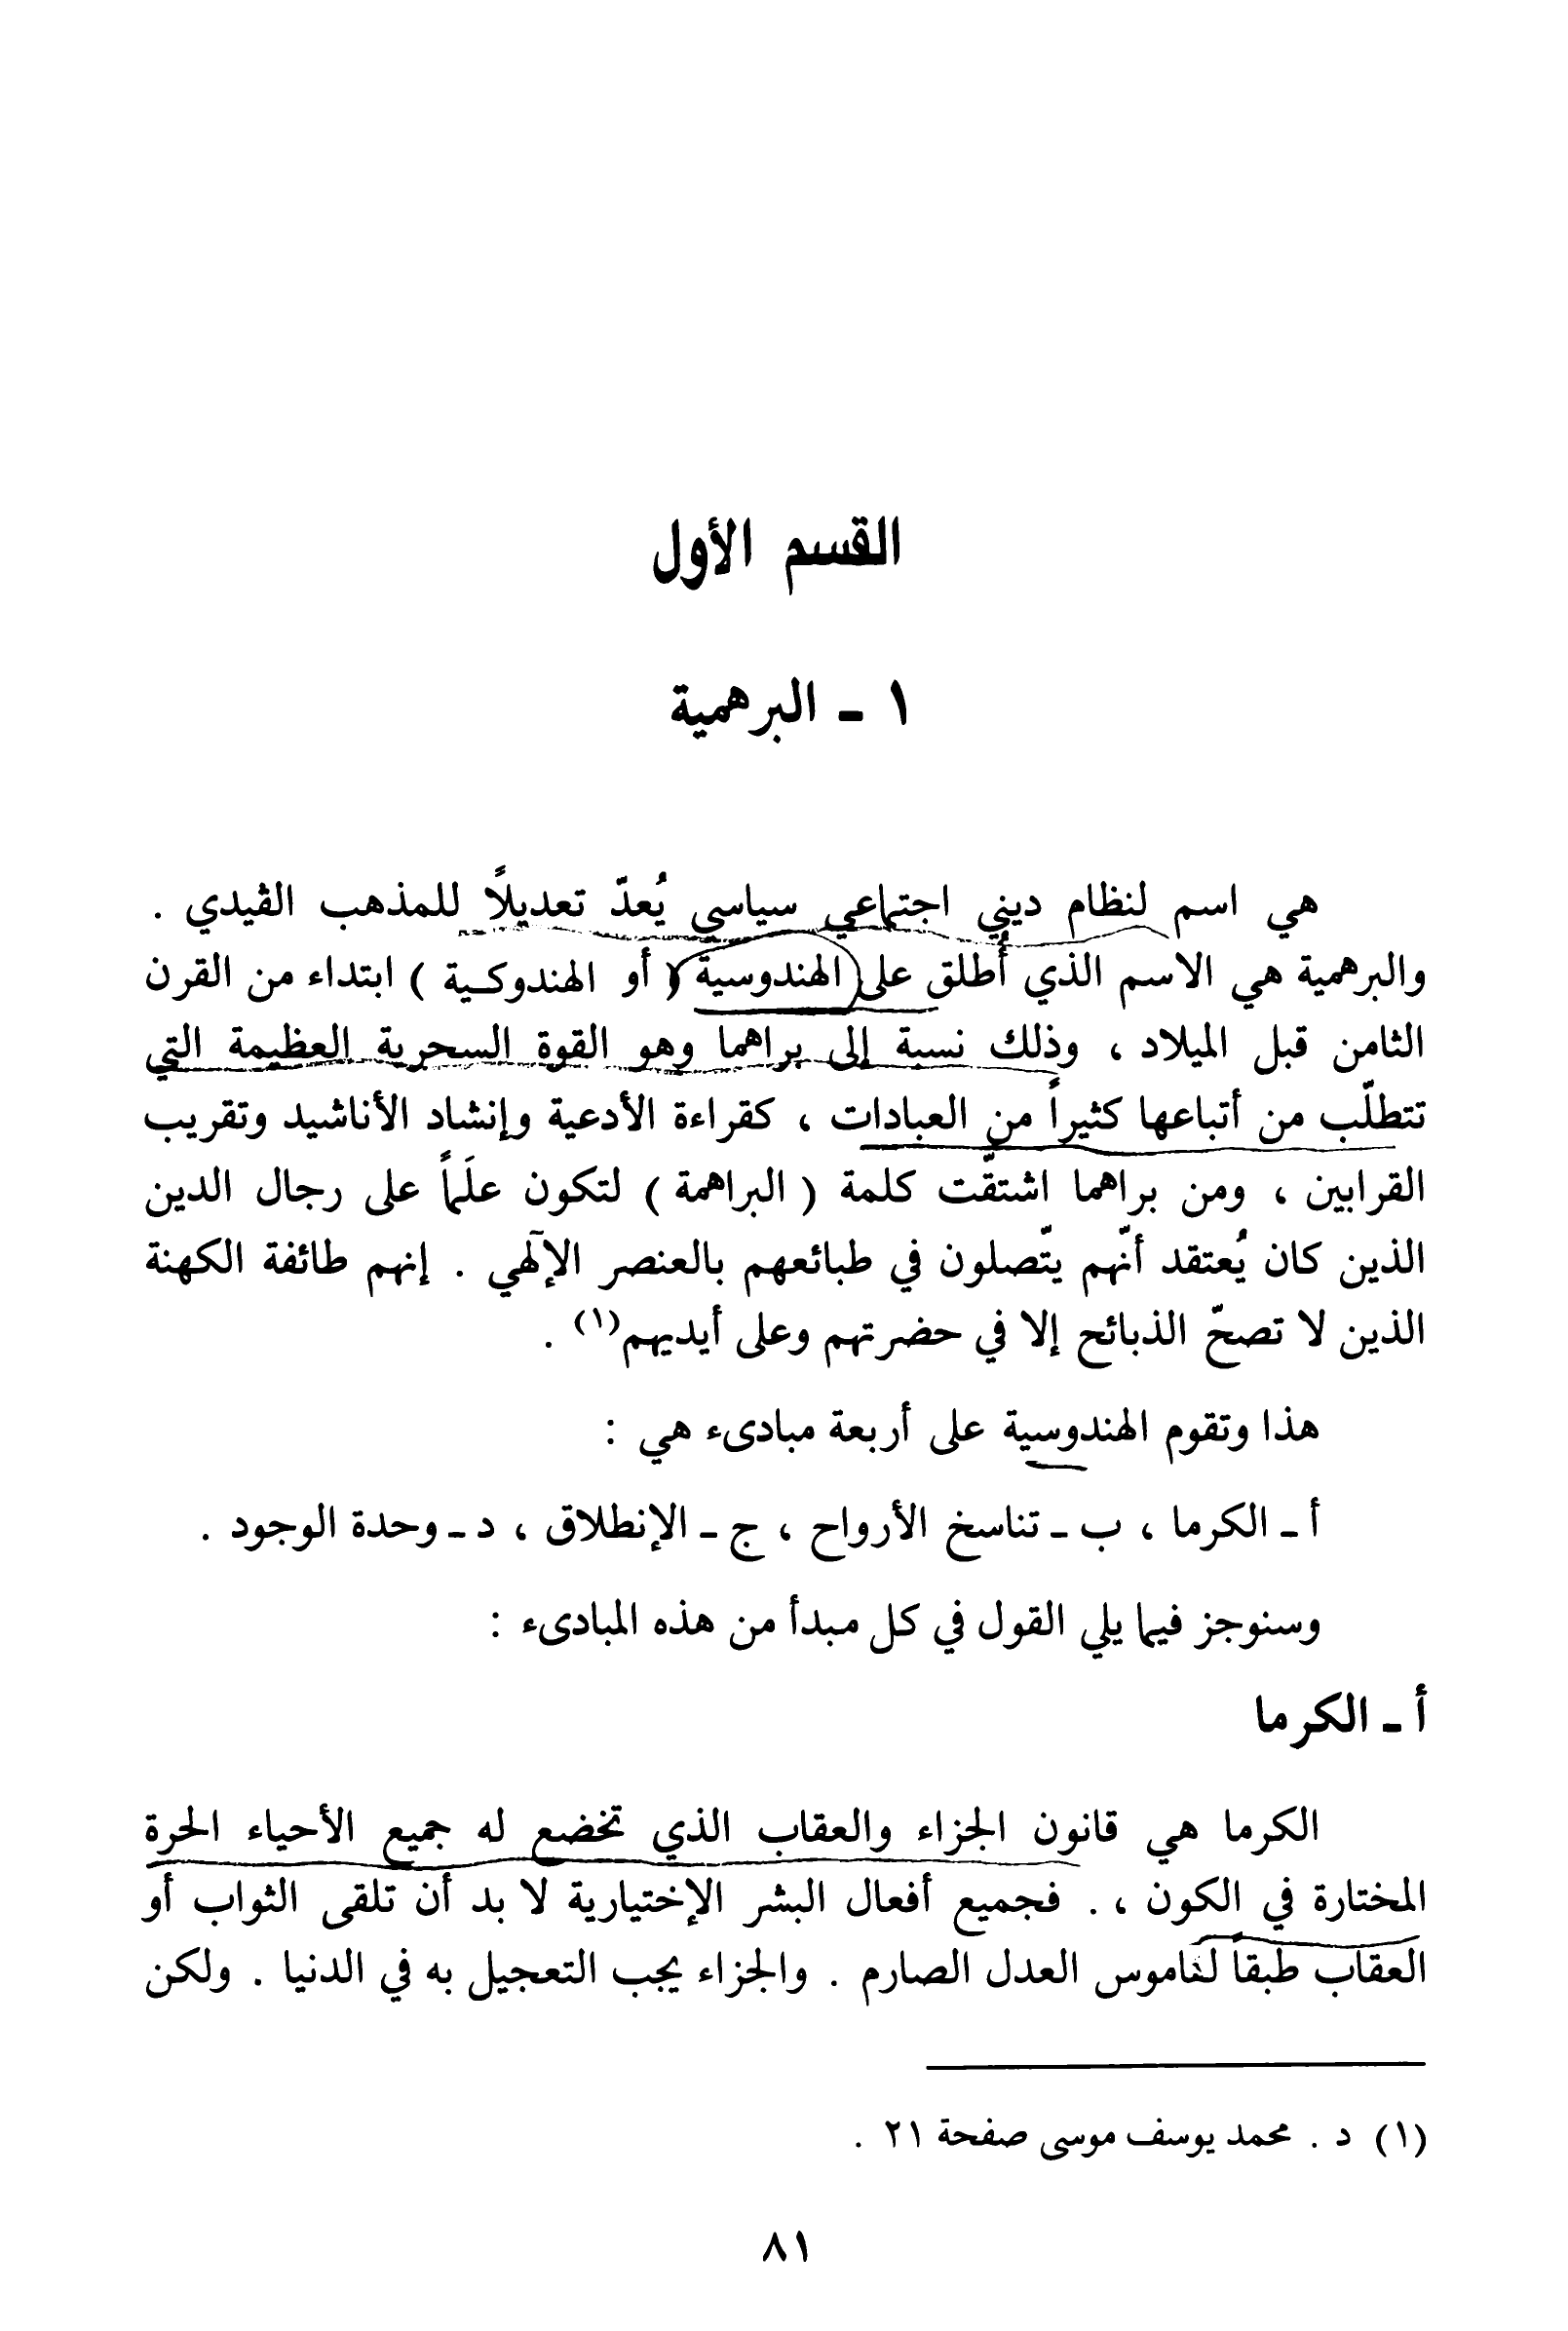 القسم الأول
١ ـ البرهمية
هي اسم لنظام ديني اجتماعي سياسي يُعدّ تعديلاً للمذهب الڤيدي .
والبرهمية هي الاسم الذي أُطلق على الهندوسية ( أو الهندوكـية ) ابتداء من القرن
الثامن قبل الميلاد ، وذلك نسبة إلى براهما وهو القوة السحرية العظيمة التي
تتطلّب من أتباعها كثيراً من العبادات ، كقراءة الأدعية وإنشاد الأناشيد وتقريب
القرابين ، ومن براهما اشتقّت كلمة ( البراهمة ) لتكون علَماً على رجال الدين
الذين كان يُعتقد أنّهم يتّصلون في طبائعهم بالعنصر الإلٓهي . إنهم طائفة الكهنة
الذين لا تصحّ الذبائح إلا في حضرتهم وعلى أيديهم(١) .
هذا وتقوم الهندوسية على أربعة مبادىء هي :
أ ـ الكرما ، ب ـ تناسخ الأرواح ، ج ـ الإنطلاق ، د ـ وحدة الوجود .
وسنوجز فيما يلي القول في كل مبدأ من هذه المبادىء :
أ ـ الكرما
الكرما هي قانون الجزاء والعقاب الذي تخضع له جميع الأحياء الحرة
المختارة في الكون ، . فجميع أفعال البشر الإختيارية لا بد أن تلقى الثواب أو
العقاب طبقاً لناموس العدل الصارم . والجزاء يجب التعجيل به في الدنيا . ولكن
(١) د . محمد يوسف موسى صفحة ٢١ .
٨١